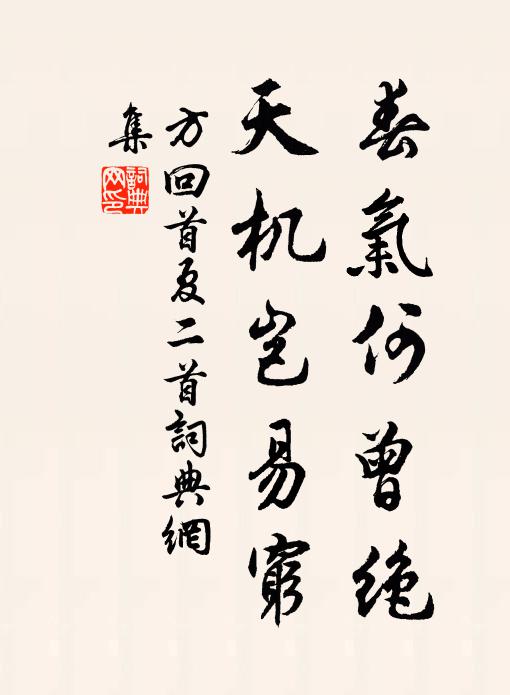 春氣何曾絶
天机岂易窮
方回首夏二首詞典網
集
詞典
网印